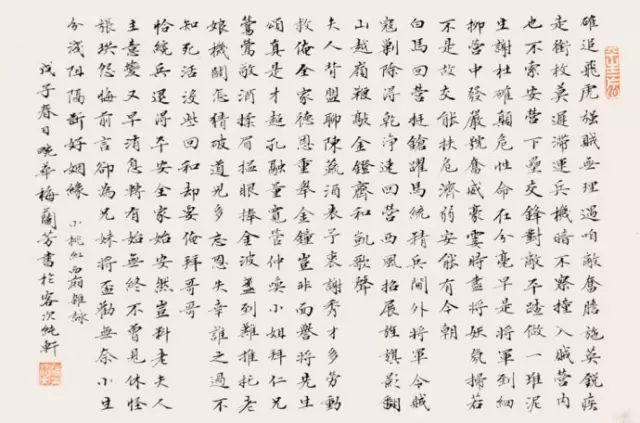 確追飛虎強賊無理過咱敵奮膽施英銳疾
走銜枚莫遲滯運兵機暗不察撞入賊營內
也不索安營下壘交鋒對敵平踏做一堆泥
生謝杜確顛危性命在分毫早是將軍到細
柳營中發嚴號奮威豪霎時盡將妖氛掃若
不是故交能扶危濟弱安能有今朝
白馬回營挺鎗躍馬統精兵閫外將軍令賊
寇剿除得乾淨速回營西風招展旌旗影翻
山越嶺鞭敲金鐙齊和凱歌聲
夫人背盟聊陳蔬酒表予衷謝秀才多勞動
救俺全家德恩重舉金鐘豈非面譽將先生
頌真是才超孔融量寬管仲喚小姐拜仁兄
鶯鶯敬酒揉眉搵眼捧金波盞到難推托老
娘機關怎猜破道兄多忘恩失幸誰之過不
知死活沒些回和却要俺拜哥哥
恰繞兵退得平安全家始安然豈料老夫人
主意變又早消息轉有始無終不曾見休怪
張珙怨悔前言卻為兄妹將盃勸無奈小生
分淺阻隔斷好姻緣 小桃紅西廂雜詠
戊子春日畹華梅蘭芳書於客次純軒